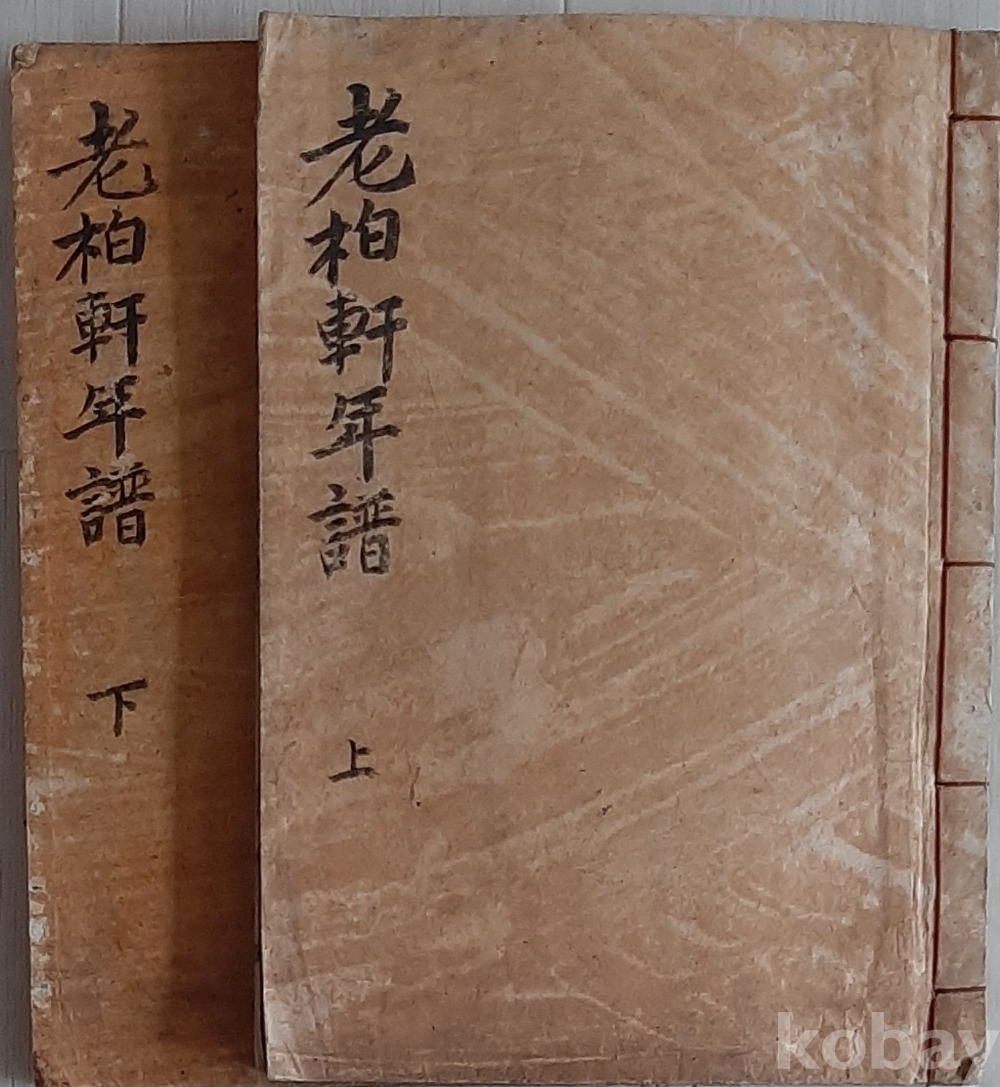 老柏軒年譜
上
老柏軒年譜
下
kobay